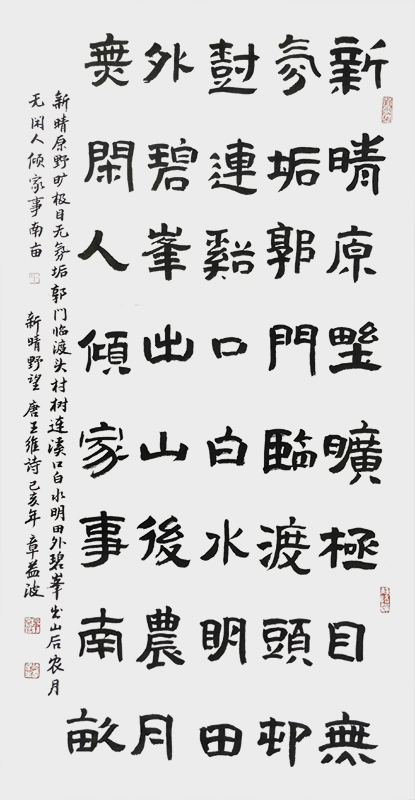 新晴原野曠極目無
氛垢郭門臨渡頭邨
尌連谿口白水明田
外碧峯出山後農月
無閑人傾家事南畝
新晴原野旷极目无氛垢郭门临渡头村树连溪口白水明田外碧峯出山后农月
无闲人倾家事南亩 新晴野望 唐王维诗 己亥年 章益波